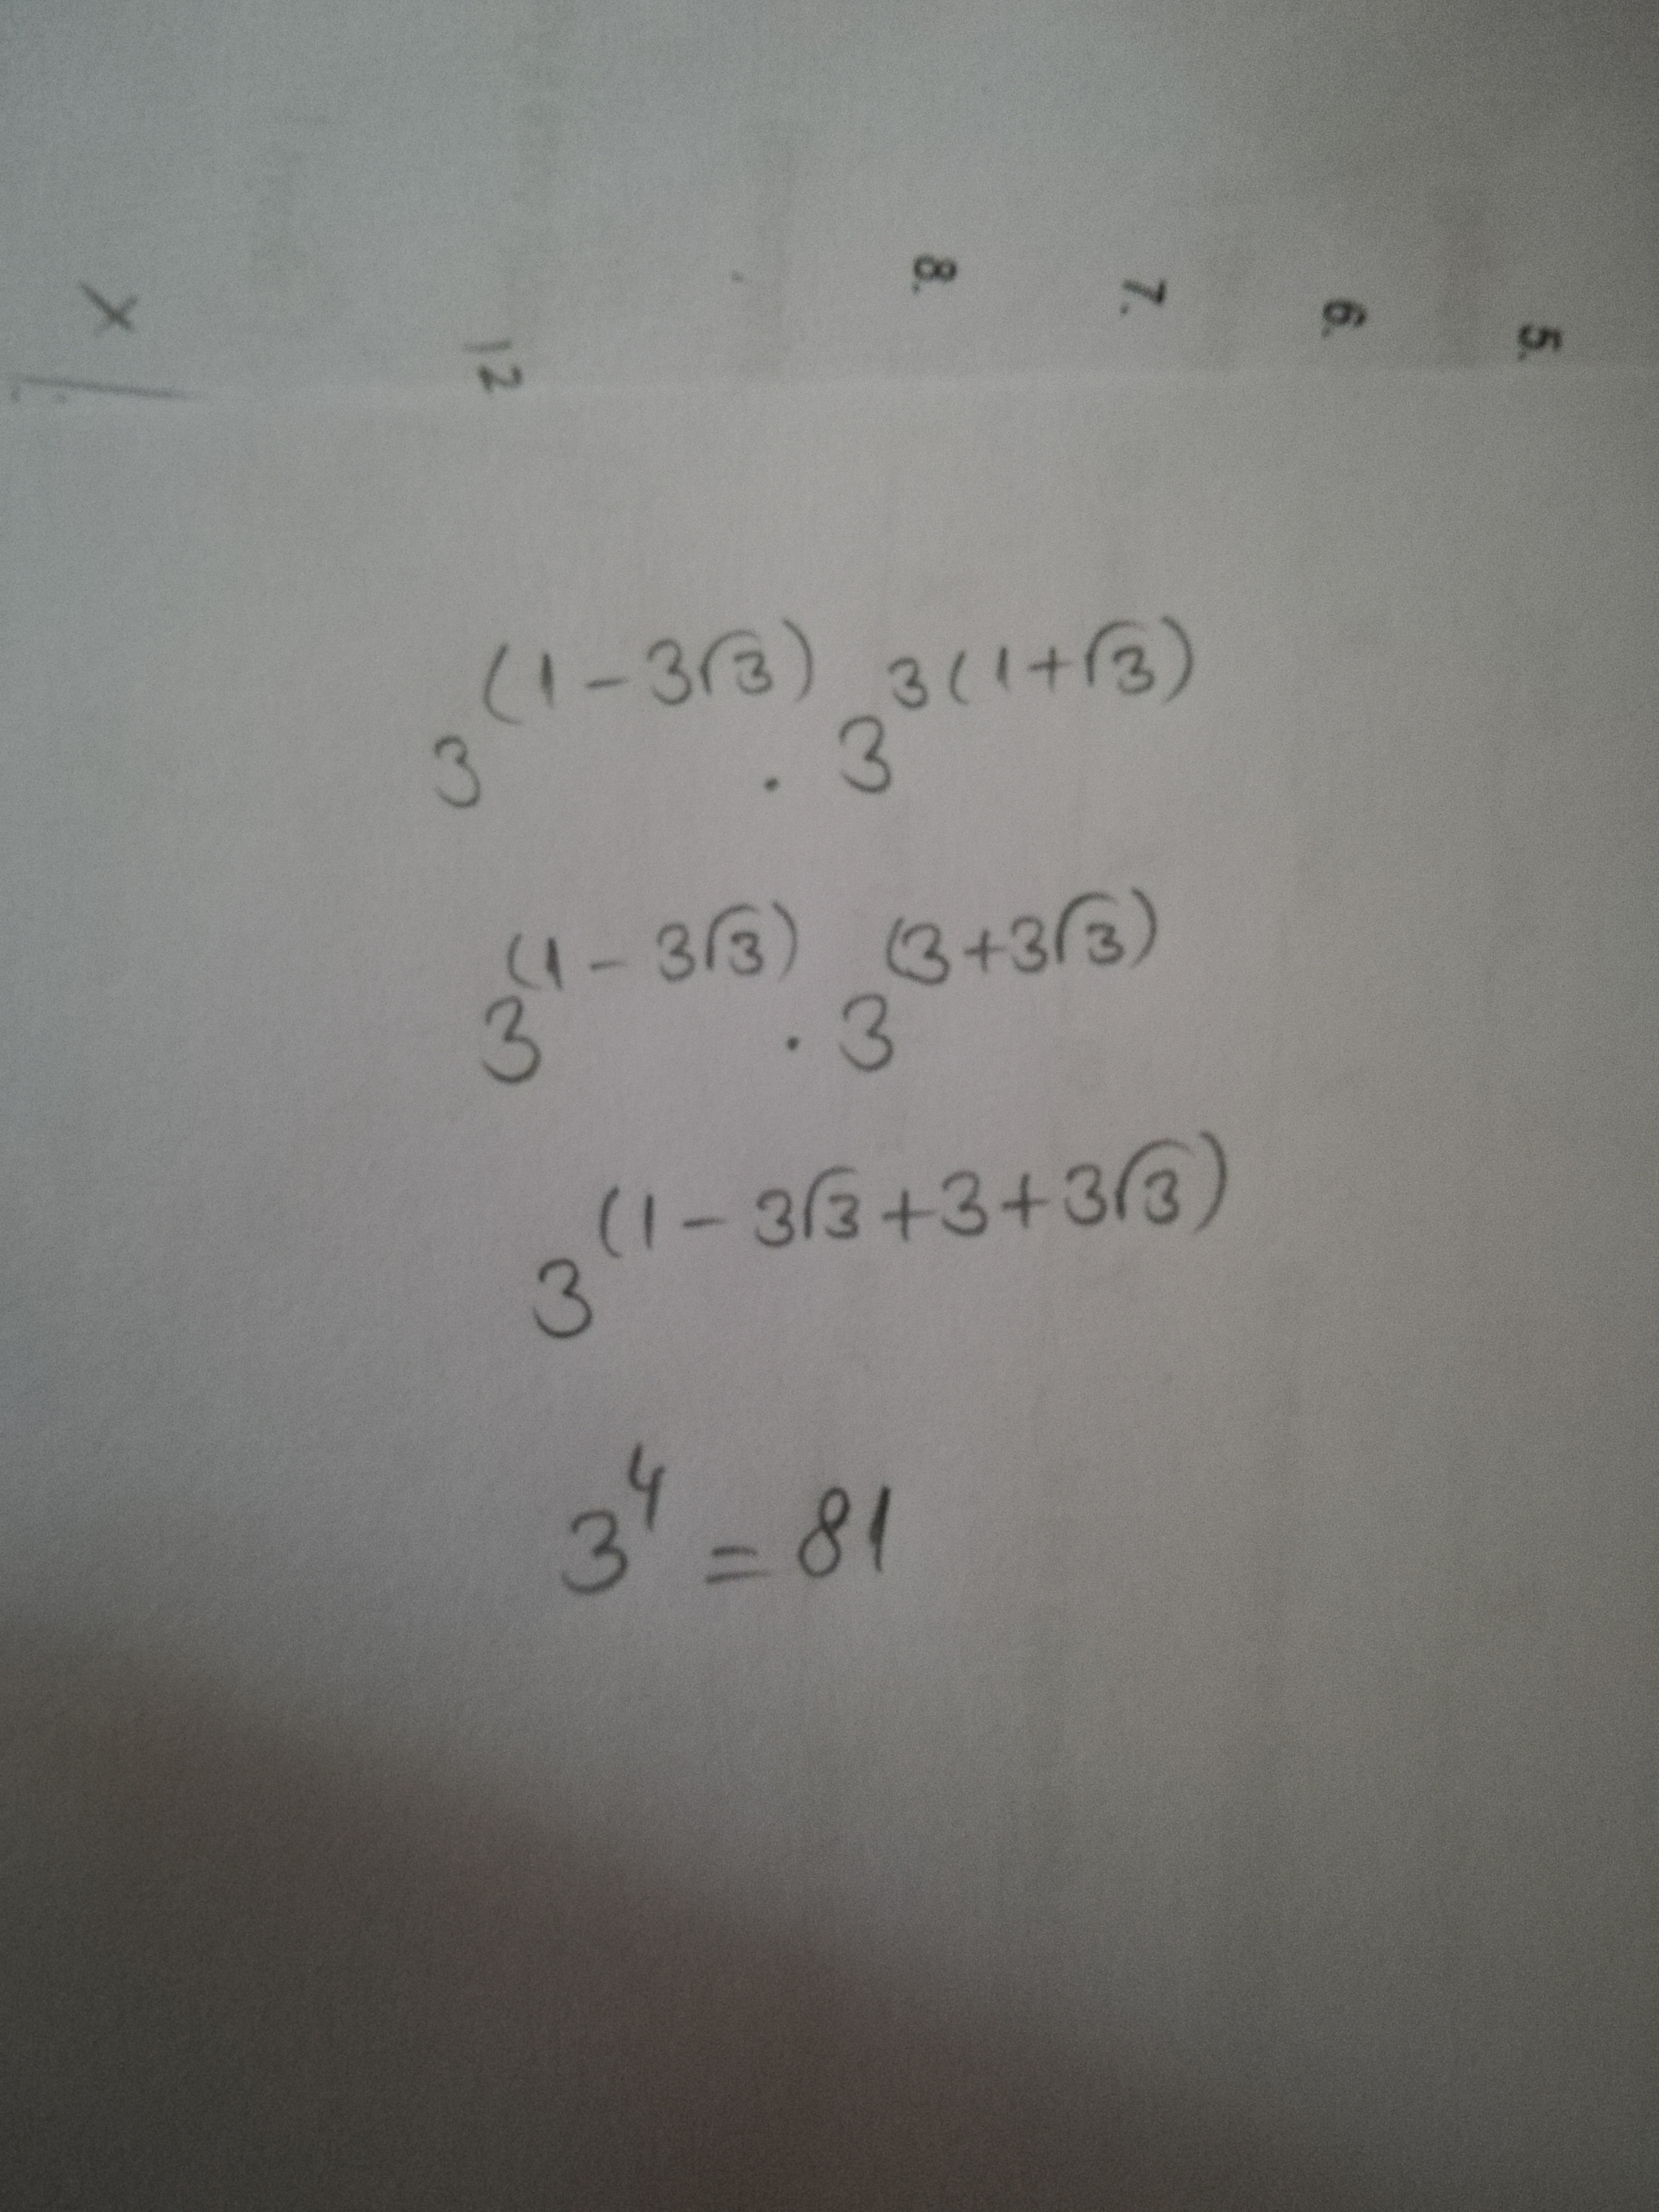 5.
6.
7.
8.
12
X
3^(1-3√3) . 3^3(1+√3)
3^(1-3√3) . 3^(3+3√3)
3^(1-3√3+3+3√3)
3^4 = 81